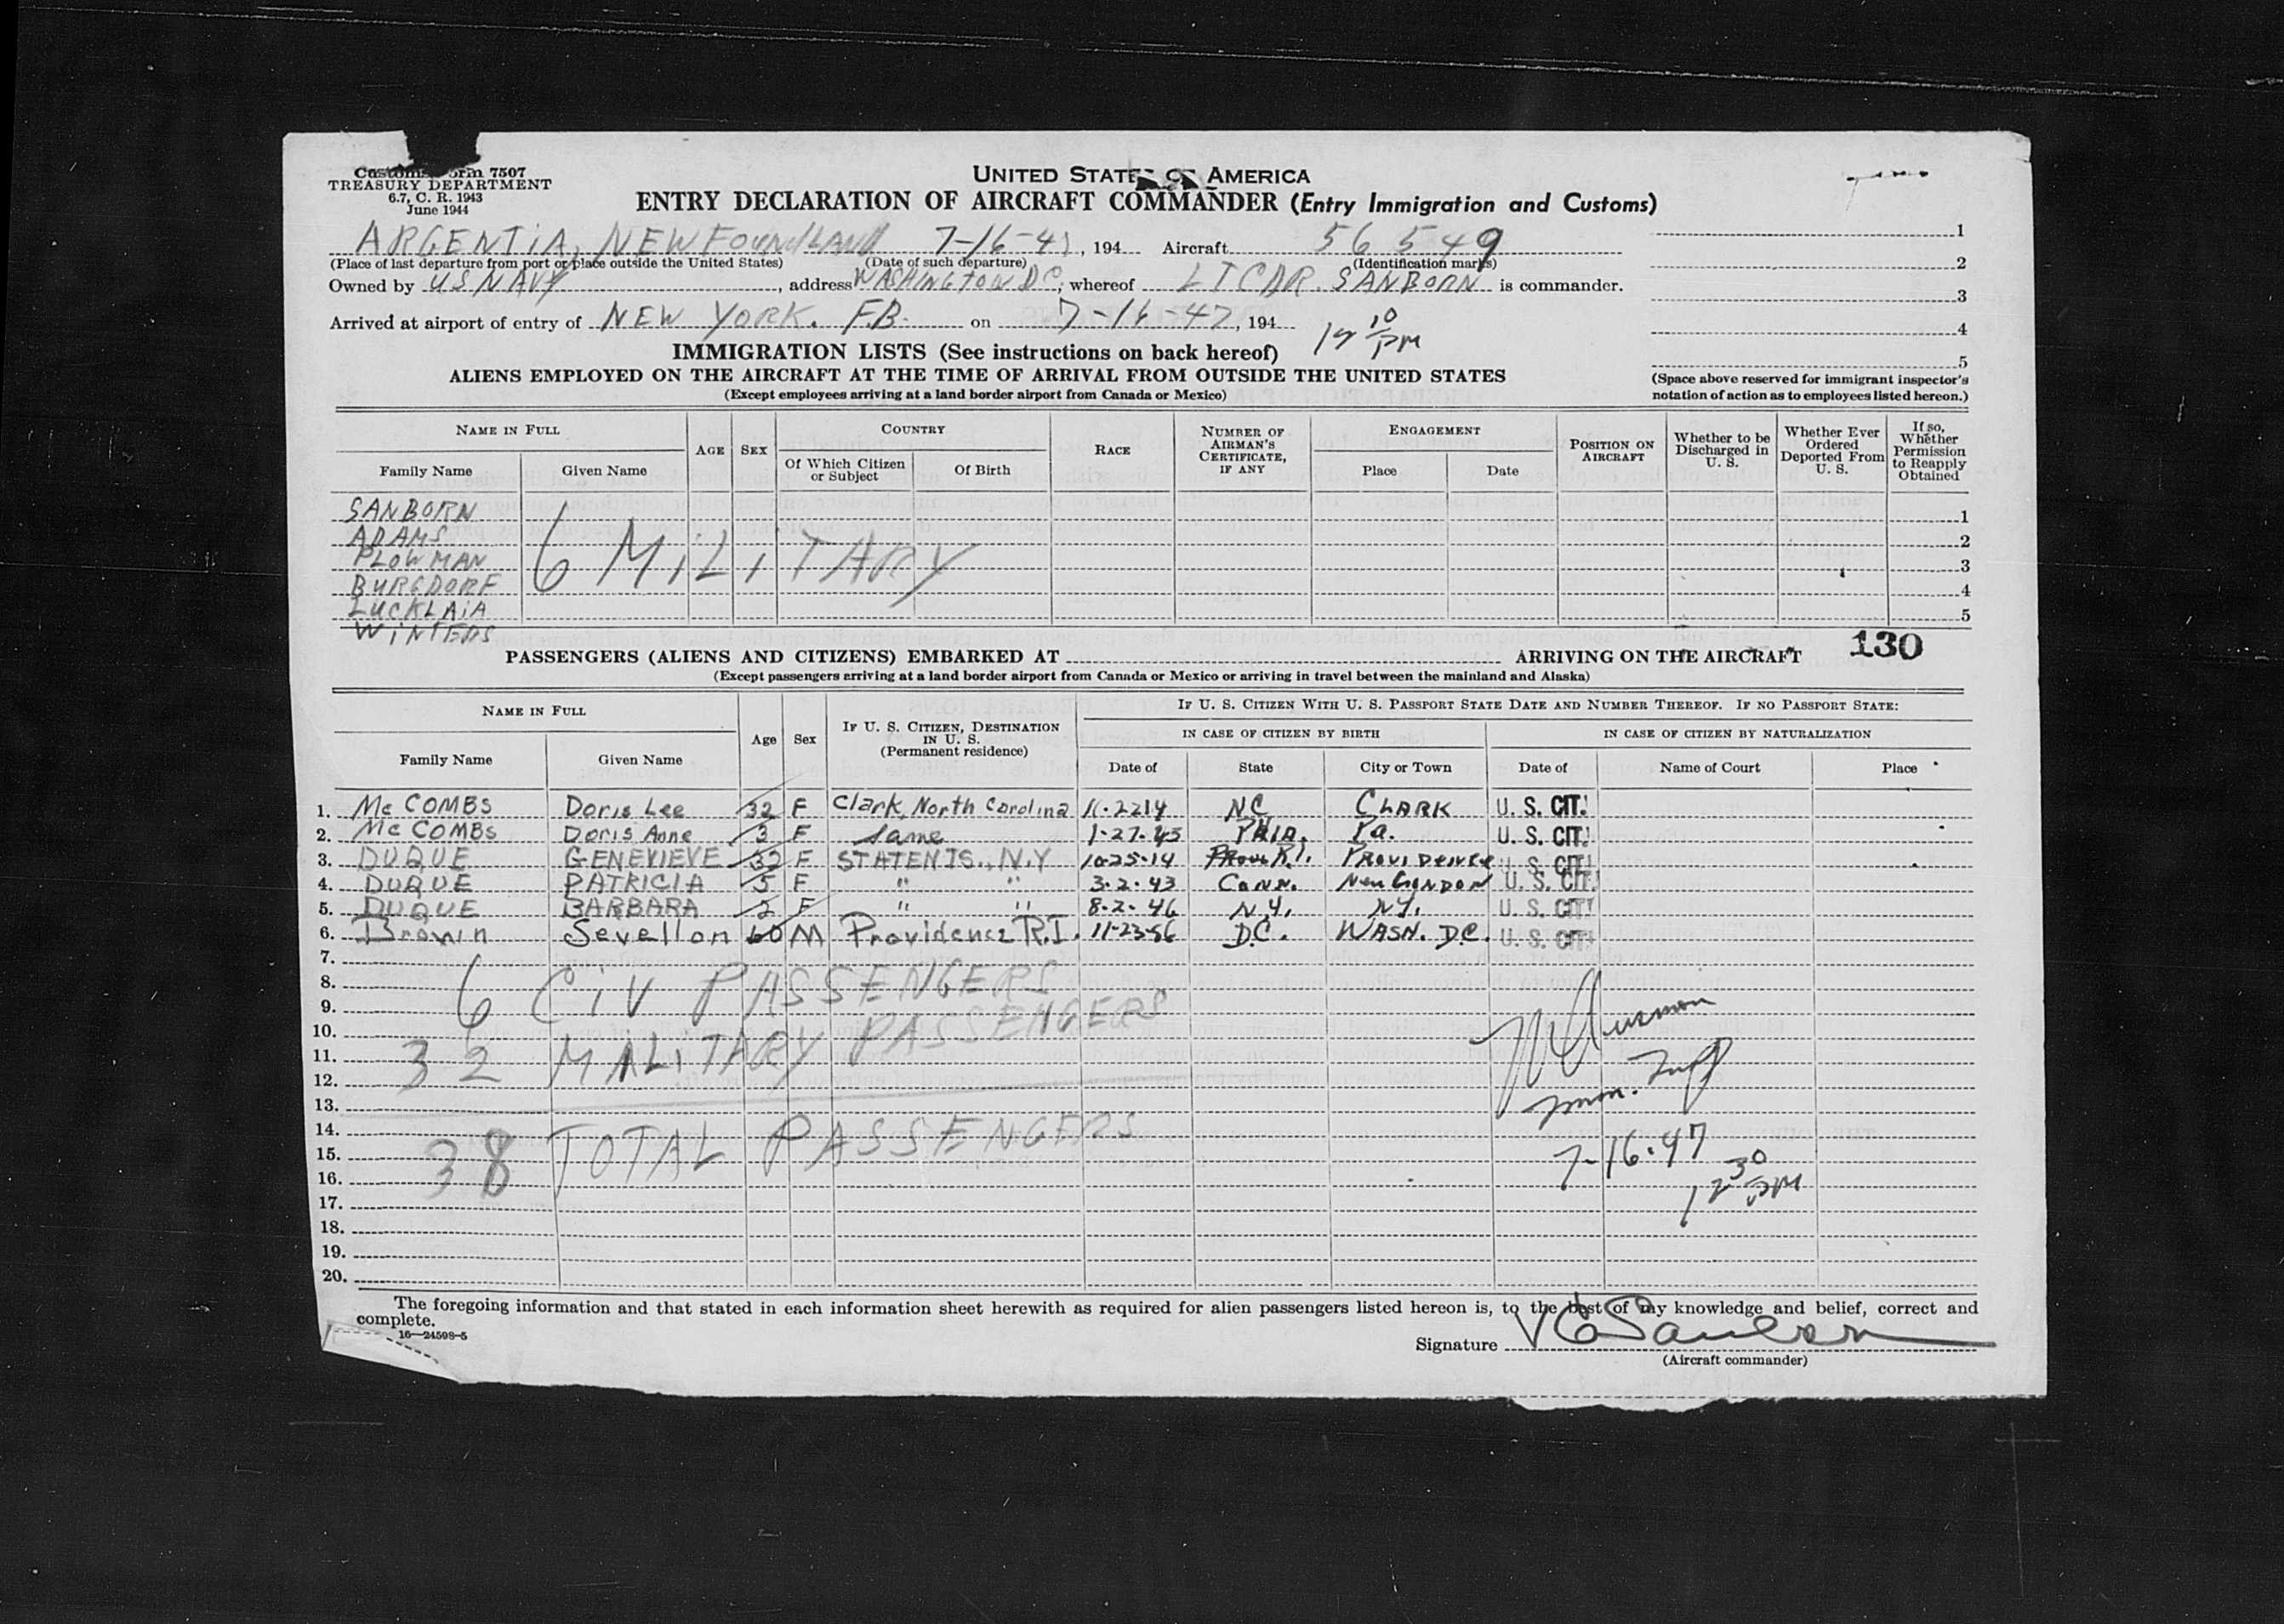 Customs Form 7507
TREASURY DEPARTMENT
6.7, C. R. 1943
June 1944
UNITED STATES OF AMERICA
ENTRY DECLARATION OF AIRCRAFT COMMANDER (Entry Immigration and Customs)
ARGENTIA, NEWFOUNDLAND 7-16-47, 194 Aircraft 56549
(Place of last departure from port or place outside the United States) (Date of such departure) (Identification marks)
Owned by US NAVY, address WASHINGTON DC, whereof LTCDR. SANBORN is commander.
Arrived at airport of entry of NEW YORK. F.B. on 7-16-47, 194 12 10 PM
1
2
3
4
5
(Space above reserved for immigrant inspector's notation of action as to employees listed hereon.)
IMMIGRATION LISTS (See instructions on back hereof)
ALIENS EMPLOYED ON THE AIRCRAFT AT THE TIME OF ARRIVAL FROM OUTSIDE THE UNITED STATES
(Except employees arriving at a land border airport from Canada or Mexico)
NAME IN FULL AGE SEX COUNTRY RACE NUMBER OF AIRMAN'S CERTIFICATE, IF ANY ENGAGEMENT POSITION ON AIRCRAFT Whether to be Discharged in U. S. Whether Ever Ordered Deported From U. S. If so, Whether Permission to Reapply Obtained
Family Name Given Name Of Which Citizen or Subject Of Birth Place Date
SANBORN 1
ADAMS 2
PLOWMAN 6 MiLiTARY 3
BURGDORF 4
LUCKLAiA 5
WiNTERS
130
PASSENGERS (ALIENS AND CITIZENS) EMBARKED AT ARRIVING ON THE AIRCRAFT
(Except passengers arriving at a land border airport from Canada or Mexico or arriving in travel between the mainland and Alaska)
NAME IN FULL Age Sex IF U. S. CITIZEN, DESTINATION IN U. S. (Permanent residence) IF U. S. CITIZEN WITH U. S. PASSPORT STATE DATE AND NUMBER THEREOF. IF NO PASSPORT STATE:
IN CASE OF CITIZEN BY BIRTH IN CASE OF CITIZEN BY NATURALIZATION
Family Name Given Name Date of State City or Town Date of Name of Court Place
1. Mc COMBS Doris Lee 32 F Clark, North Carolina 11-22-14 NC CLARK U. S. CIT.
2. Mc COMBS Doris Anne 3 F Same 1-27-43 PHIA. Pa. U. S. CIT.
3. DUQUE GENEVIEVE 32 F STATEN IS., N.Y 10-25-14 Prov. R.I. PROVIDENCE U. S. CIT.
4. DUQUE PATRICIA 5 F " " 3-2-43 CONN. New LONDON U. S. CIT.
5. DUQUE BARBARA 2 F " " 8-2-46 N.Y. N.Y. U. S. CIT.
6. Brown Sevellon 60 M Providence R.I. 11-23-86 D.C. WASN. D.C. U. S. CIT.
7.
8. 6 CiV PASSENGERS
9.
10.
11. 32 MiLiTARY PASSENGERS
12. Imm. Insp
13.
14.
15. 38 TOTAL PASSENGERS 7-16-47
16. 12 30 PM
17.
18.
19.
20.
The foregoing information and that stated in each information sheet herewith as required for alien passengers listed hereon is, to the best of my knowledge and belief, correct and
complete.
16—24598-5
Signature
(Aircraft commander)